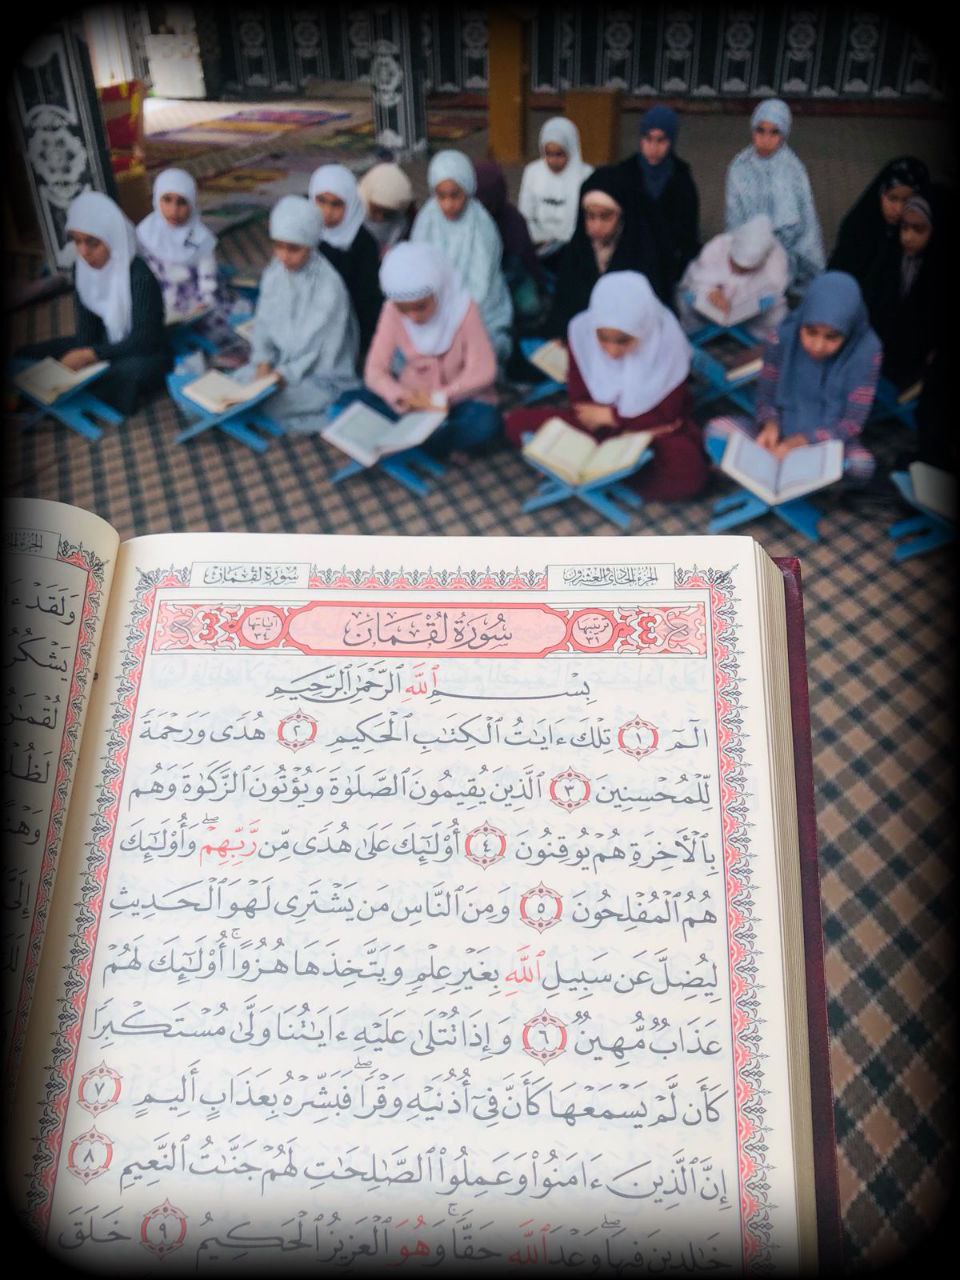 الجزء الحادي والعشرون
سورة لقمان
ترتيبها ٣١
سُورَةُ لُقْمَانَ
آياتها ٣٤
بِسْمِ ٱللَّهِ ٱلرَّحْمَٰنِ ٱلرَّحِيمِ
الٓمٓ ١ تِلْكَ ءَايَٰتُ ٱلْكِتَٰبِ ٱلْحَكِيمِ ٢ هُدًى وَرَحْمَةً
لِّلْمُحْسِنِينَ ٣ ٱلَّذِينَ يُقِيمُونَ ٱلصَّلَوٰةَ وَيُؤْتُونَ ٱلزَّكَوٰةَ وَهُم
بِٱلْأَخِرَةِ هُمْ يُوقِنُونَ ٤ أُوْلَٰٓئِكَ عَلَىٰ هُدًى مِّن رَّبِّهِمْۖ وَأُوْلَٰٓئِكَ
هُمُ ٱلْمُفْلِحُونَ ٥ وَمِنَ ٱلنَّاسِ مَن يَشْتَرِى لَهْوَ ٱلْحَدِيثِ
لِيُضِلَّ عَن سَبِيلِ ٱللَّهِ بِغَيْرِ عِلْمٍ وَيَتَّخِذَهَا هُزُوًاۚ أُوْلَٰٓئِكَ لَهُمْ
عَذَابٌ مُّهِينٌ ٦ وَإِذَا تُتْلَىٰ عَلَيْهِ ءَايَٰتُنَا وَلَّىٰ مُسْتَكْبِرًا
كَأَن لَّمْ يَسْمَعْهَا كَأَنَّ فِىٓ أُذُنَيْهِ وَقْرًاۖ فَبَشِّرْهُ بِعَذَابٍ أَلِيمٍ ٧
إِنَّ ٱلَّذِينَ ءَامَنُواْ وَعَمِلُواْ ٱلصَّٰلِحَٰتِ لَهُمْ جَنَّٰتُ ٱلنَّعِيمِ ٨
خَٰلِدِينَ فِيهَاۖ وَعْدَ ٱللَّهِ حَقًّاۚ وَهُوَ ٱلْعَزِيزُ ٱلْحَكِيمُ ٩ خَلَقَ
وَلَقَدْ ءَ
يَشْكُرْ
لُقْمَٰنُ
لَظُلْ